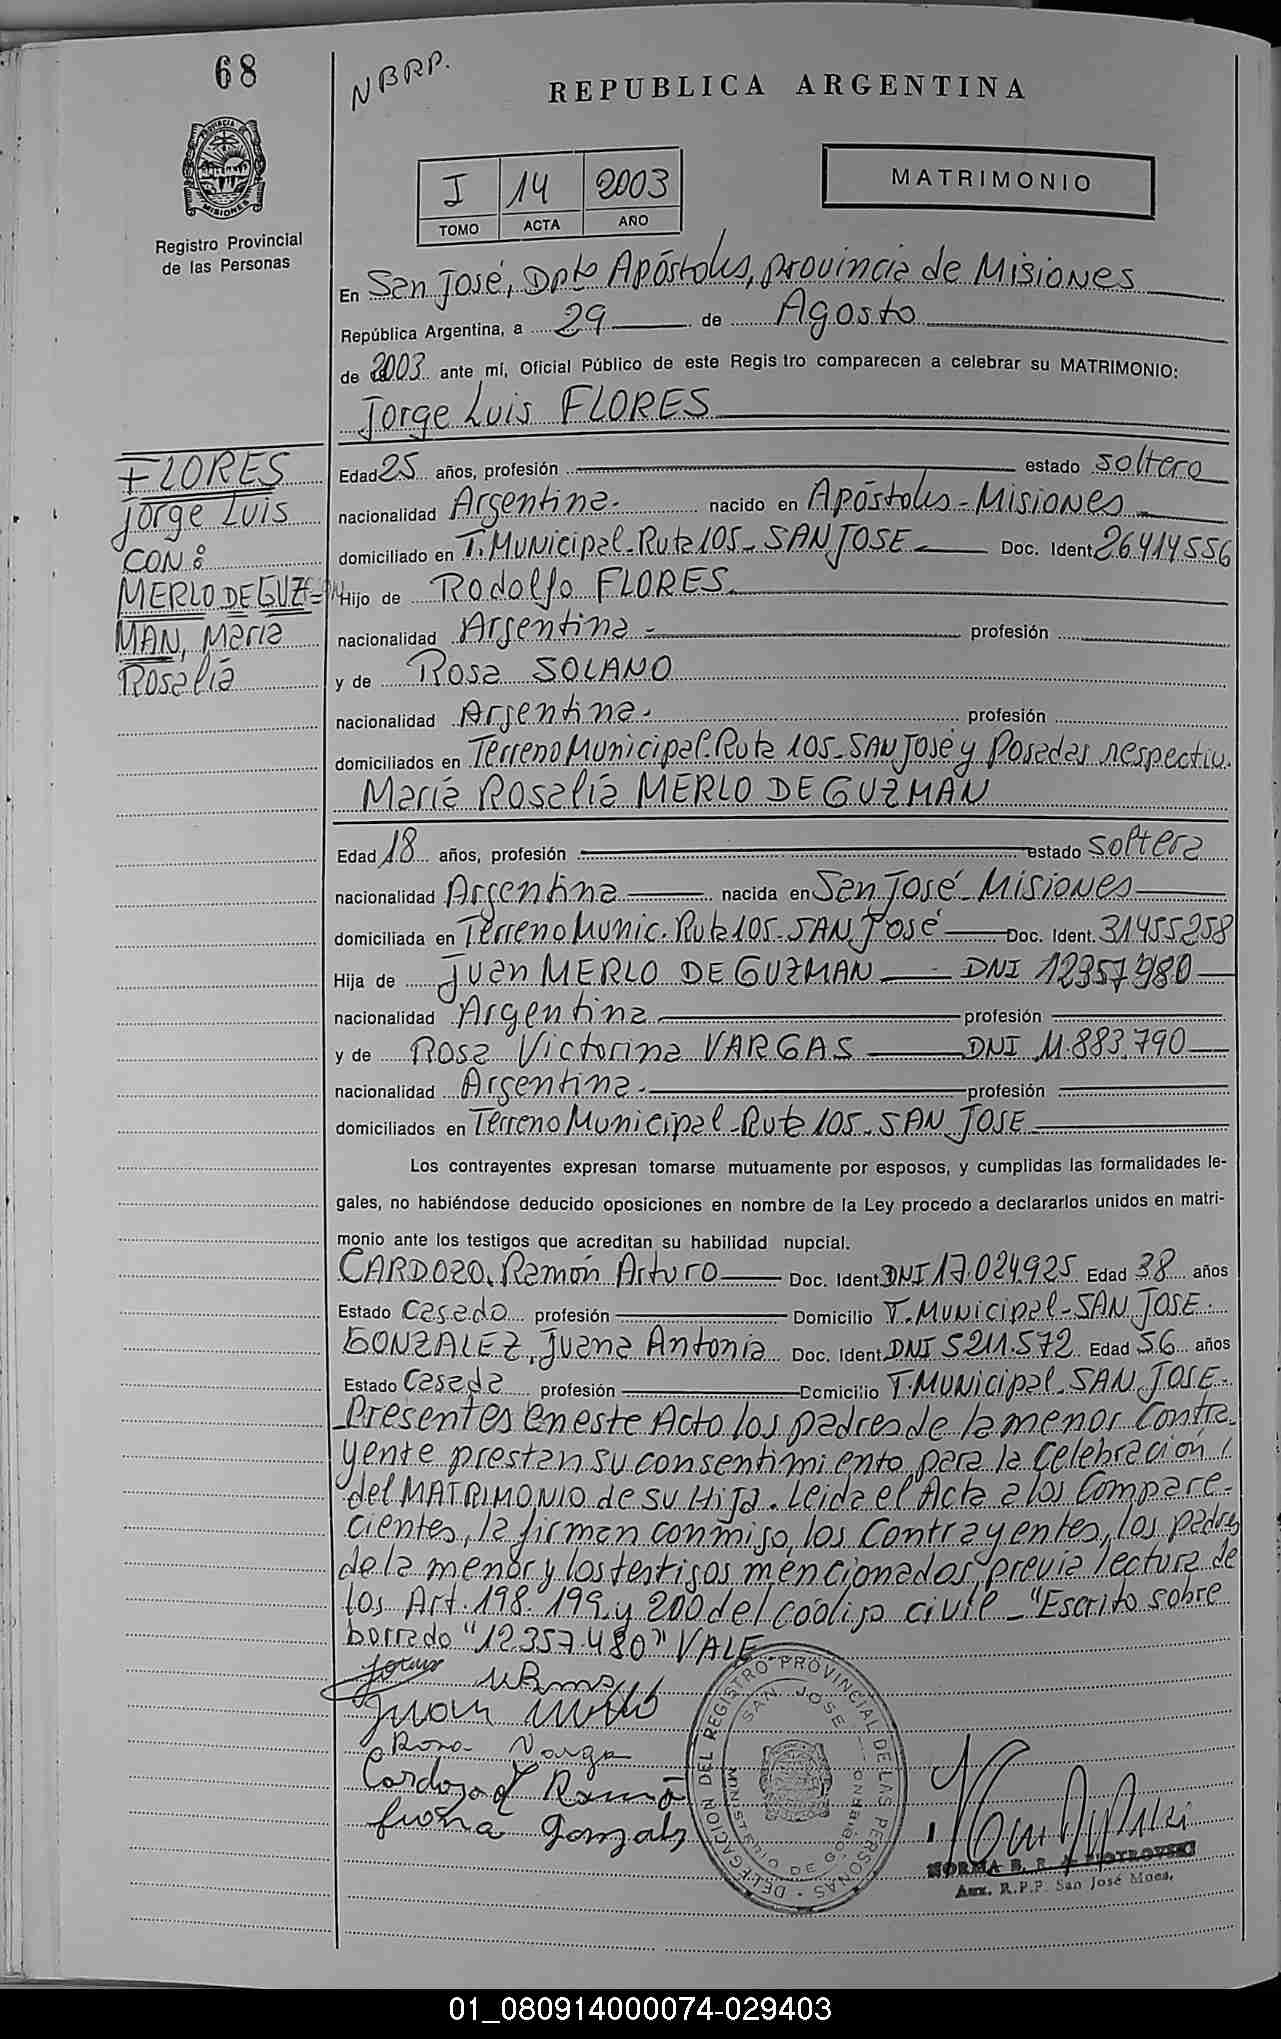 68
NBRP.
REPUBLICA ARGENTINA
PROVINCIA DE MISIONES
Registro Provincial
de las Personas
I 14 2003
TOMO ACTA AÑO
MATRIMONIO
En San José, Dpto Apóstoles, provincia de Misiones
República Argentina, a 29 de Agosto
de 2003 ante mí, Oficial Público de este Regis tro comparecen a celebrar su MATRIMONIO:
Jorge Luis FLORES
FLORES
Jorge Luis
CON:
MERLO DE GUZ=
MAN, María
Rosalía
Edad 25 años, profesión estado soltero
nacionalidad Argentina. nacido en Apóstoles - Misiones
domiciliado en T. Municipal - Ruta 105 - SAN JOSE Doc. Ident 26.414.556
Hijo de Rodolfo FLORES.
nacionalidad Argentina - profesión
y de Rosa SOLANO
nacionalidad Argentina. profesión
domiciliados en Terreno Municipal - Ruta 105 - SAN José y Posadas respectiv.
María Rosalía MERLO DE GUZMAN
Edad 18 años, profesión estado soltera
nacionalidad Argentina nacida en San José - Misiones
domiciliada en Terreno Munic. Ruta 105 - SAN José Doc. Ident. 31455258
Hija de Juan MERLO DE GUZMAN DNI 12357480
nacionalidad Argentina profesión
y de Rosa Victorina VARGAS DNI 11.883.790
nacionalidad Argentina. profesión
domiciliados en Terreno Municipal - Ruta 105 - SAN JOSE
Los contrayentes expresan tomarse mutuamente por esposos, y cumplidas las formalidades le-
gales, no habiéndose deducido oposiciones en nombre de la Ley procedo a declararlos unidos en matri-
monio ante los testigos que acreditan su habilidad nupcial.
CARDOZO, Ramón Arturo Doc. Ident DNI 17.024.925 Edad 38 años
Estado Casado profesión Domicilio T. Municipal - SAN JOSE.
GONZALEZ, Juana Antonia Doc. Ident DNI 5211.572 Edad 56 años
Estado Casada profesión Domicilio T. Municipal - SAN JOSE.
Presentes en este Acto los padres de la menor Contra-
yente prestan su consentimiento para la Celebración
del MATRIMONIO de su Hija. Leida el Acta a los Compare-
cientes, la firman conmigo, los Contrayentes, los padres
de la menor y los testigos mencionados, previa lectura de
los Art. 198. 199. y 200 del código civil - "Escrito sobre
borrado "12.357.480" VALE
Juan Merlo
Rosa Varga
Cardozo Ramó
Juana Gonzalz
DELEGACION DEL REGISTRO PROVINCIAL DE LAS PERSONAS
SAN JOSE
MINISTERIO DE GOBIERNO
NORMA B. R. PIOTROVSKI
Aux. R.P.P. San José Mnes.
01_080914000074-029403